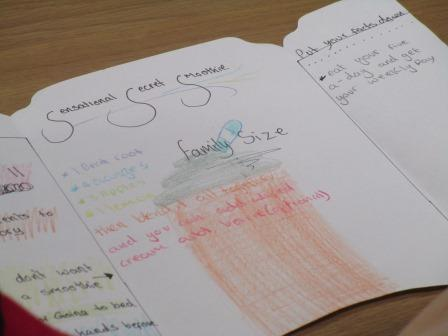 Sensational Secret Smoothie
Family Size
* 1 Beet root
* 4 oranges
* 3 apples
* 1 lemon
then blend it all together
and you can add whiped
cream
(optional)
Put your pants down
* eat your five
a-day and get
your weekly pay
ents to
ory
don't want
a smoothie
Going to bed
hands before